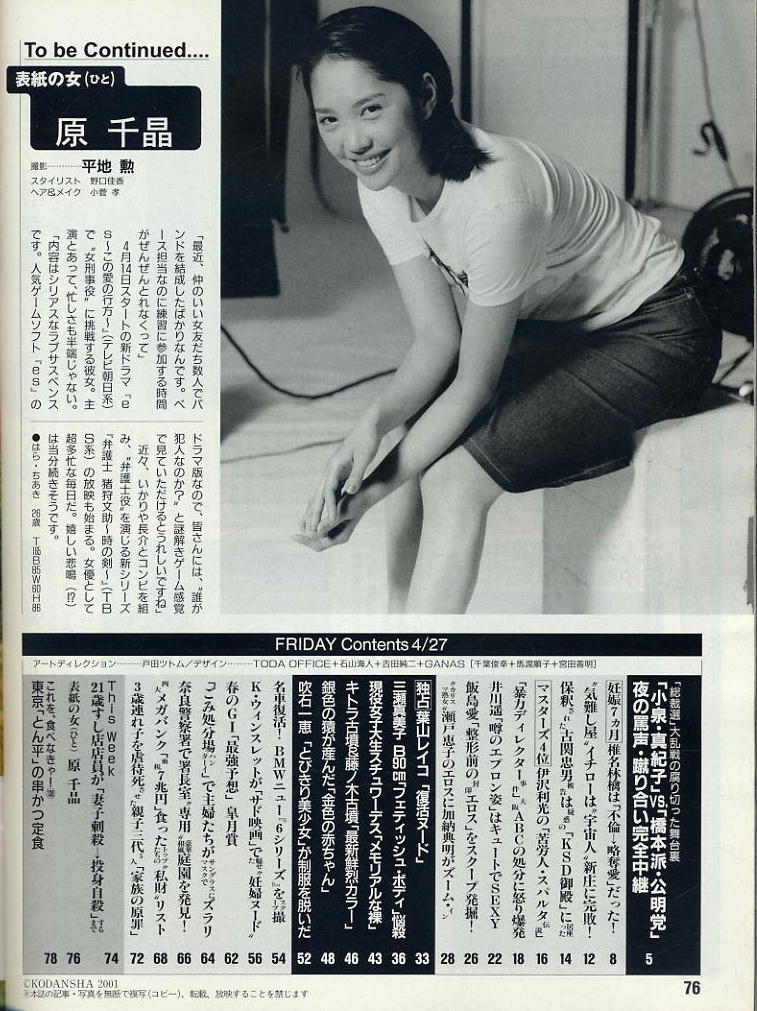 To be Continued....
表紙の女(ひと)
原 千晶
撮影…………平地 勲
スタイリスト 野口佳香
ヘア&メイク 小菅 孝
「最近、仲のいい女友だち数人でバ
ンドを結成したばかりなんです。ベ
ース担当なのに練習に参加する時間
がぜんぜんとれなくって」
4月14日スタートの新ドラマ『e
s〜この愛の行方〜』(テレビ朝日系)
で〝女刑事役〟に挑戦する彼女。主
演とあって、忙しさも半端じゃない。
「内容はシリアスなラブサスペンス
です。人気ゲームソフト『es』の
ドラマ版なので、皆さんには、〝誰が
犯人なのか?〟と謎解きゲーム感覚
で見ていただけるとうれしいですね」
近々、いかりや長介とコンビを組
み、〝弁護士役〟を演じる新シリーズ
『弁護士 猪狩文助〜時の剣〜』(TB
S系)の放映も始まる。女優として
超多忙な毎日だ。嬉しい悲鳴(!?)
は当分続きそうです。
●はら・ちあき 26歳 T165B85W60H86
FRIDAY Contents 4/27
アートディレクション………戸田ツトム/デザイン………TODA OFFICE+石山海人+吉田純二+GANAS[千葉俊幸+馬渡順子+宮田善明]
「総裁選」大乱戦の腐り切った舞台裏
「小泉・真紀子」VS.「橋本派・公明党」
夜の罵言・蹴り合い完全中継 5
妊娠7ヵ月 椎名林檎は「不倫→略奪愛」だった! 8
〝気難し屋〟イチローは〝宇宙人〟新庄に完敗! 12
保釈された古関忠男被告は疑惑の「KSD御殿」に居座った 14
マスターズ4位 伊沢利光の「苦労人・スパルタ伝説」 16
「暴力ディレクター」事件 大阪ABCの処分に怒り爆発 18
井川遥「噂のエプロン姿」はキュートでSEXY 22
飯島愛「整形前の封印エロス」をスクープ発掘! 26
瀬戸恵子のエロスに加納典明がズーム・イン 28
独占 葉山レイコ「復活ヌード」 33
三瀬真美子 B90cm「フェティッシュ・ボディ」悩殺 36
現役女子大生スチュワーデス「メモリアルな裸」 43
キトラ古墳&藤ノ木古墳「最新鮮烈カラー」 46
銀色の猿が産んだ「金色の赤ちゃん」 48
吹石一恵「とびきり美少女」が制服を脱いだ 52
名車復活!BMWニュー『6シリーズ』をスクープ撮 54
K・ウィンスレットが「サド映画」で魅せた「妊婦ヌード」 56
春のGI「最強予想」皐月賞 62
「ごみ処分場ハンター」で主婦たちがサングラスにマスクでズラリ 64
奈良警察署で「署長室」専用「豪華和風庭園」を発見! 66
四大メガバンク「血税7兆円」食ったトップたちの「私財」リスト 68
3歳連れ子を虐待死させた「親子三代」8人「家族の原罪」 72
This Week
21歳すし店店員が「妻子刺殺→投身自殺」するまで 74
表紙の女(ひと) 原 千晶 76
これを、食べなきゃ!
東京「とん平」の串かつ定食 78
©KODANSHA 2001
本誌の記事・写真を無断で複写(コピー)、転載、放映することを禁じます
76